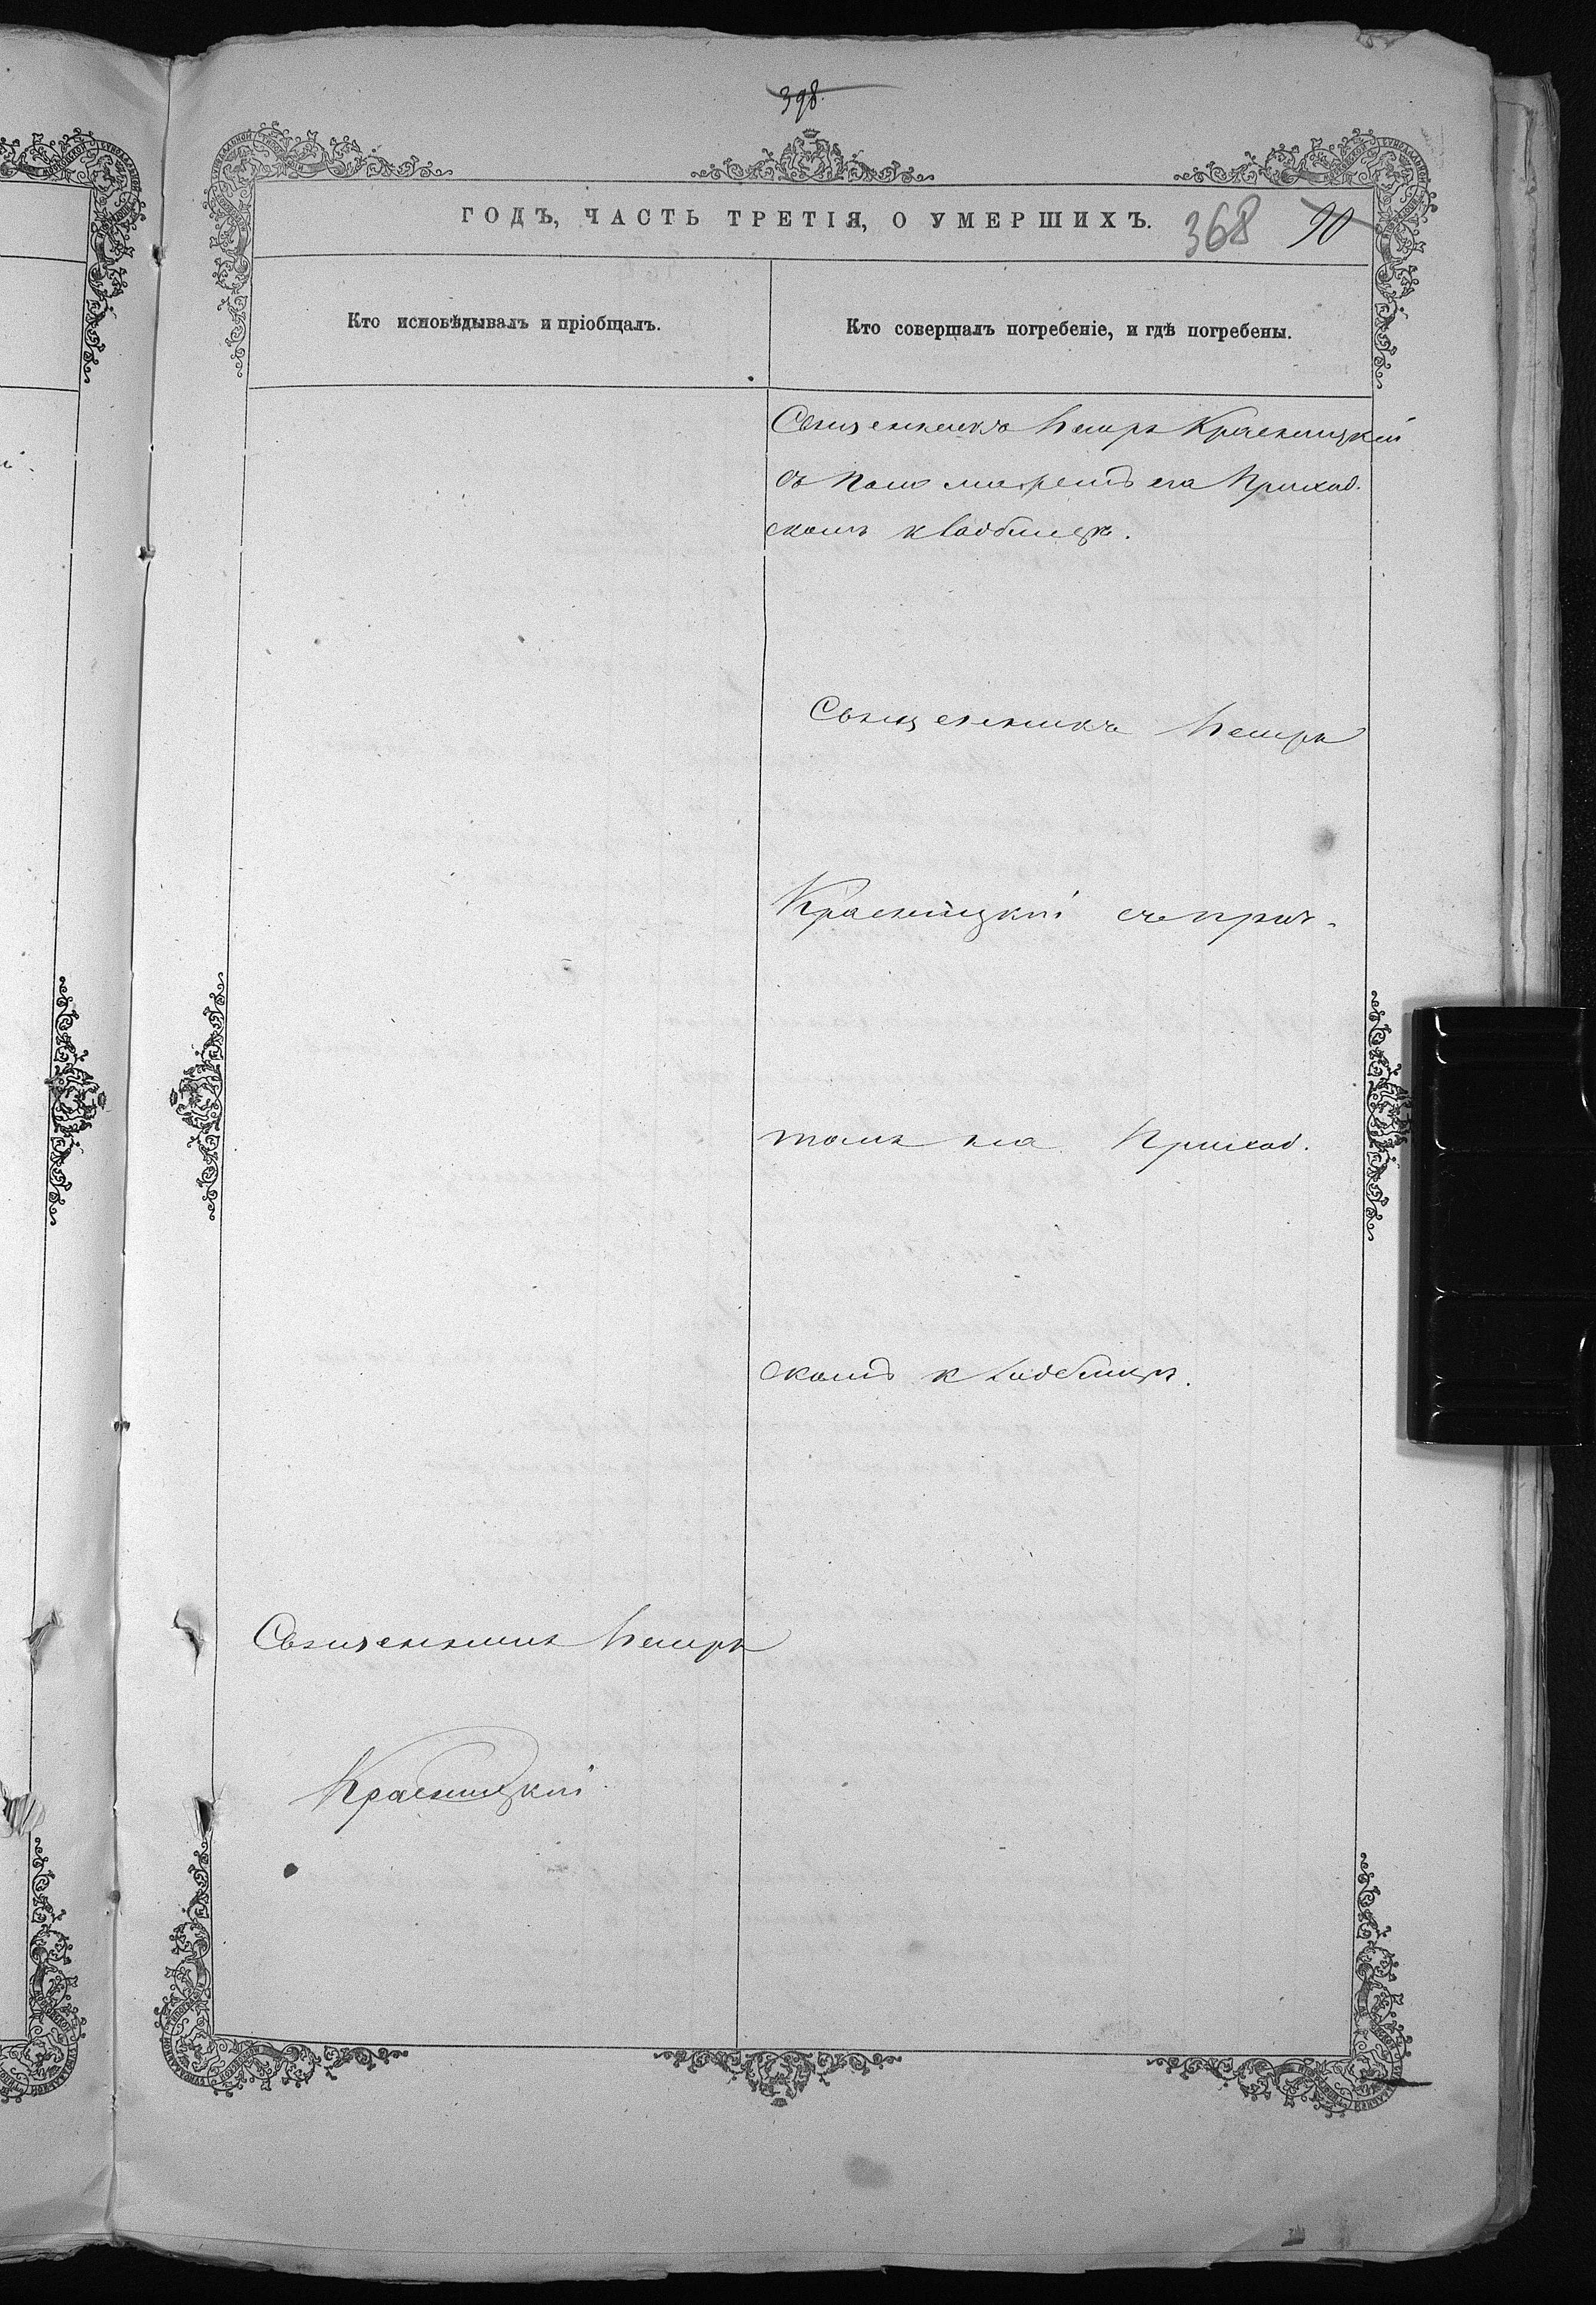 398.
ГОДЪ, ЧАСТЬ ТРЕТІЯ, О УМЕРШИХЪ. 368 90
Кто исповѣдывалъ и пріобщалъ.
Кто совершалъ погребеніе, и гдѣ погребены.
Священникъ Петръ Красницкій
на Приход.
скомъ кладбищѣ.
Священникъ Петръ
Красницкій съ прич.
томъ на Приход.
скомъ кладбищѣ.
Священникъ Петръ
Красницкій